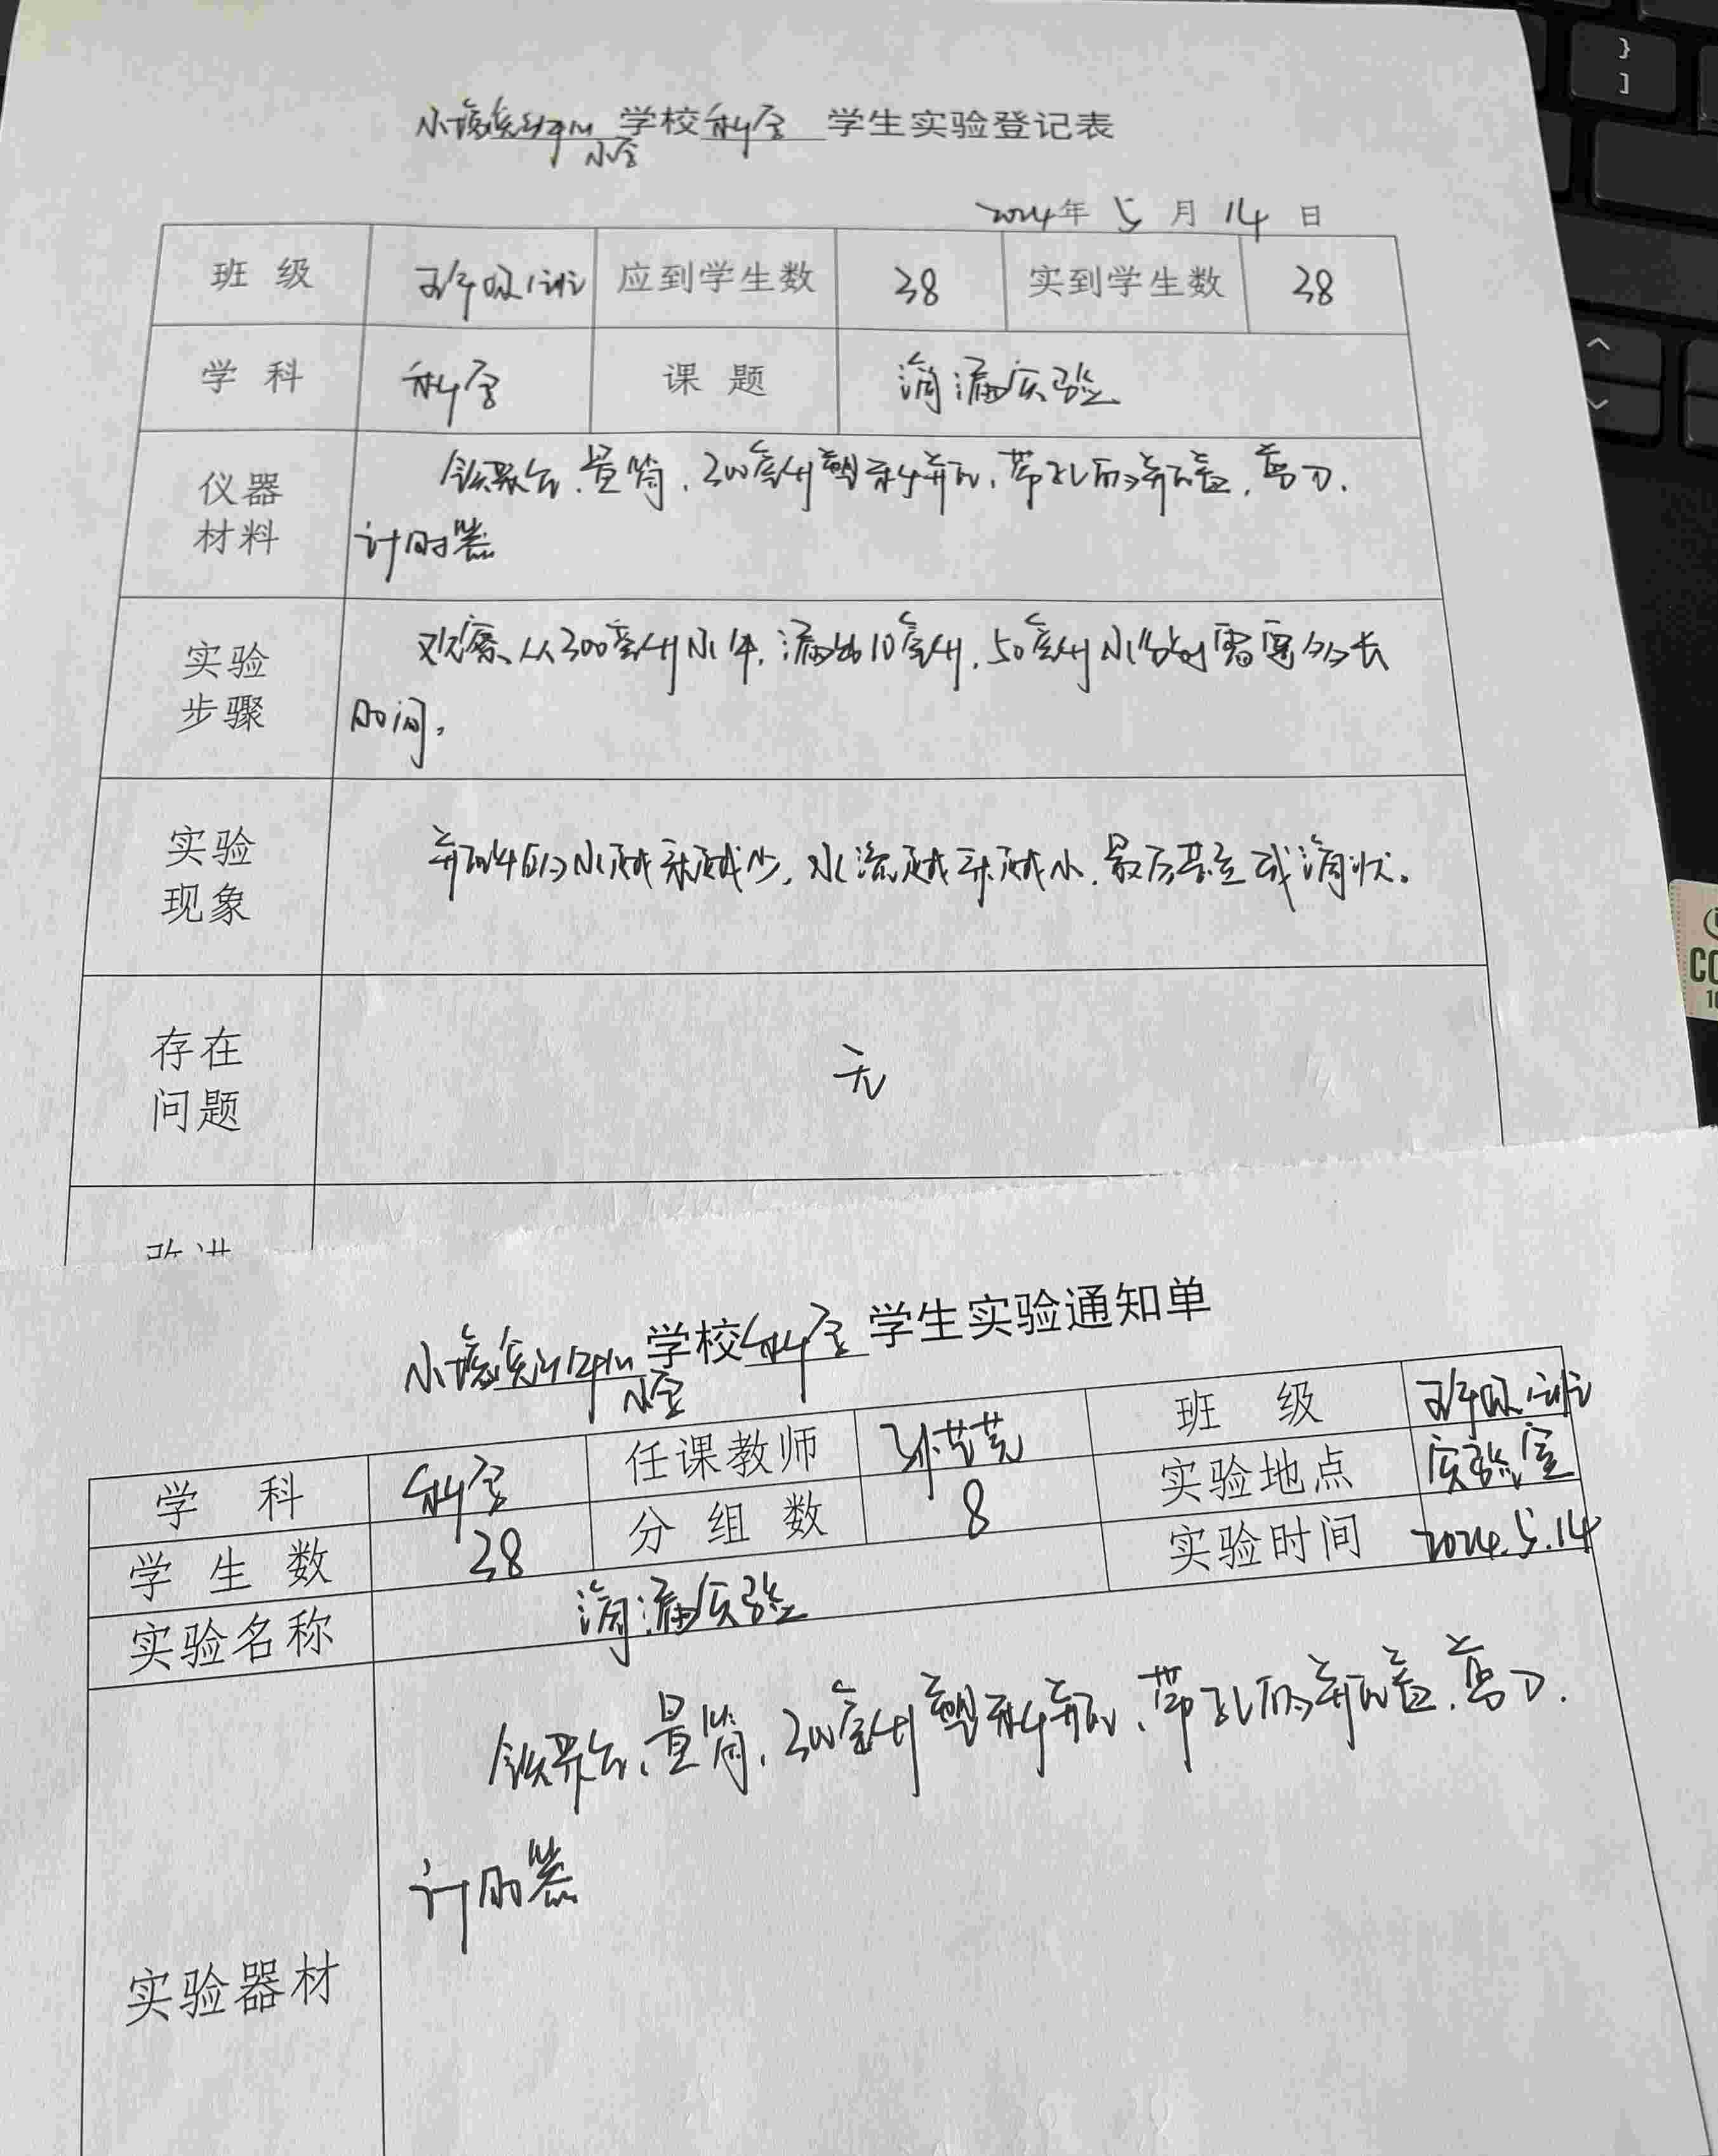 学校科学 学生实验登记表
小学
2024年 5 月 14 日
班 级 五年级1班 应到学生数 38 实到学生数 38
学 科 科学 课 题 滴漏实验
仪器
材料
铁架台、量筒、300毫升塑料瓶、带孔的瓶盖、剪刀、
计时器
实验
步骤
观察从300毫升水中,漏出10毫升,50毫升水分别需要多长
时间。
实验
现象
瓶中的水越来越少,水流越来越小,最后甚至成滴状。
存在
问题
无
改进
学校科学 学生实验通知单
小学
学 科 科学 任课教师 班 级 五年级1班
学 生 数 38 分 组 数 8 实验地点 实验室
实验名称 滴漏实验 实验时间 2024.5.14
实验器材
铁架台、量筒、300毫升塑料瓶、带孔的瓶盖、剪刀、
计时器
}
]
CO
10